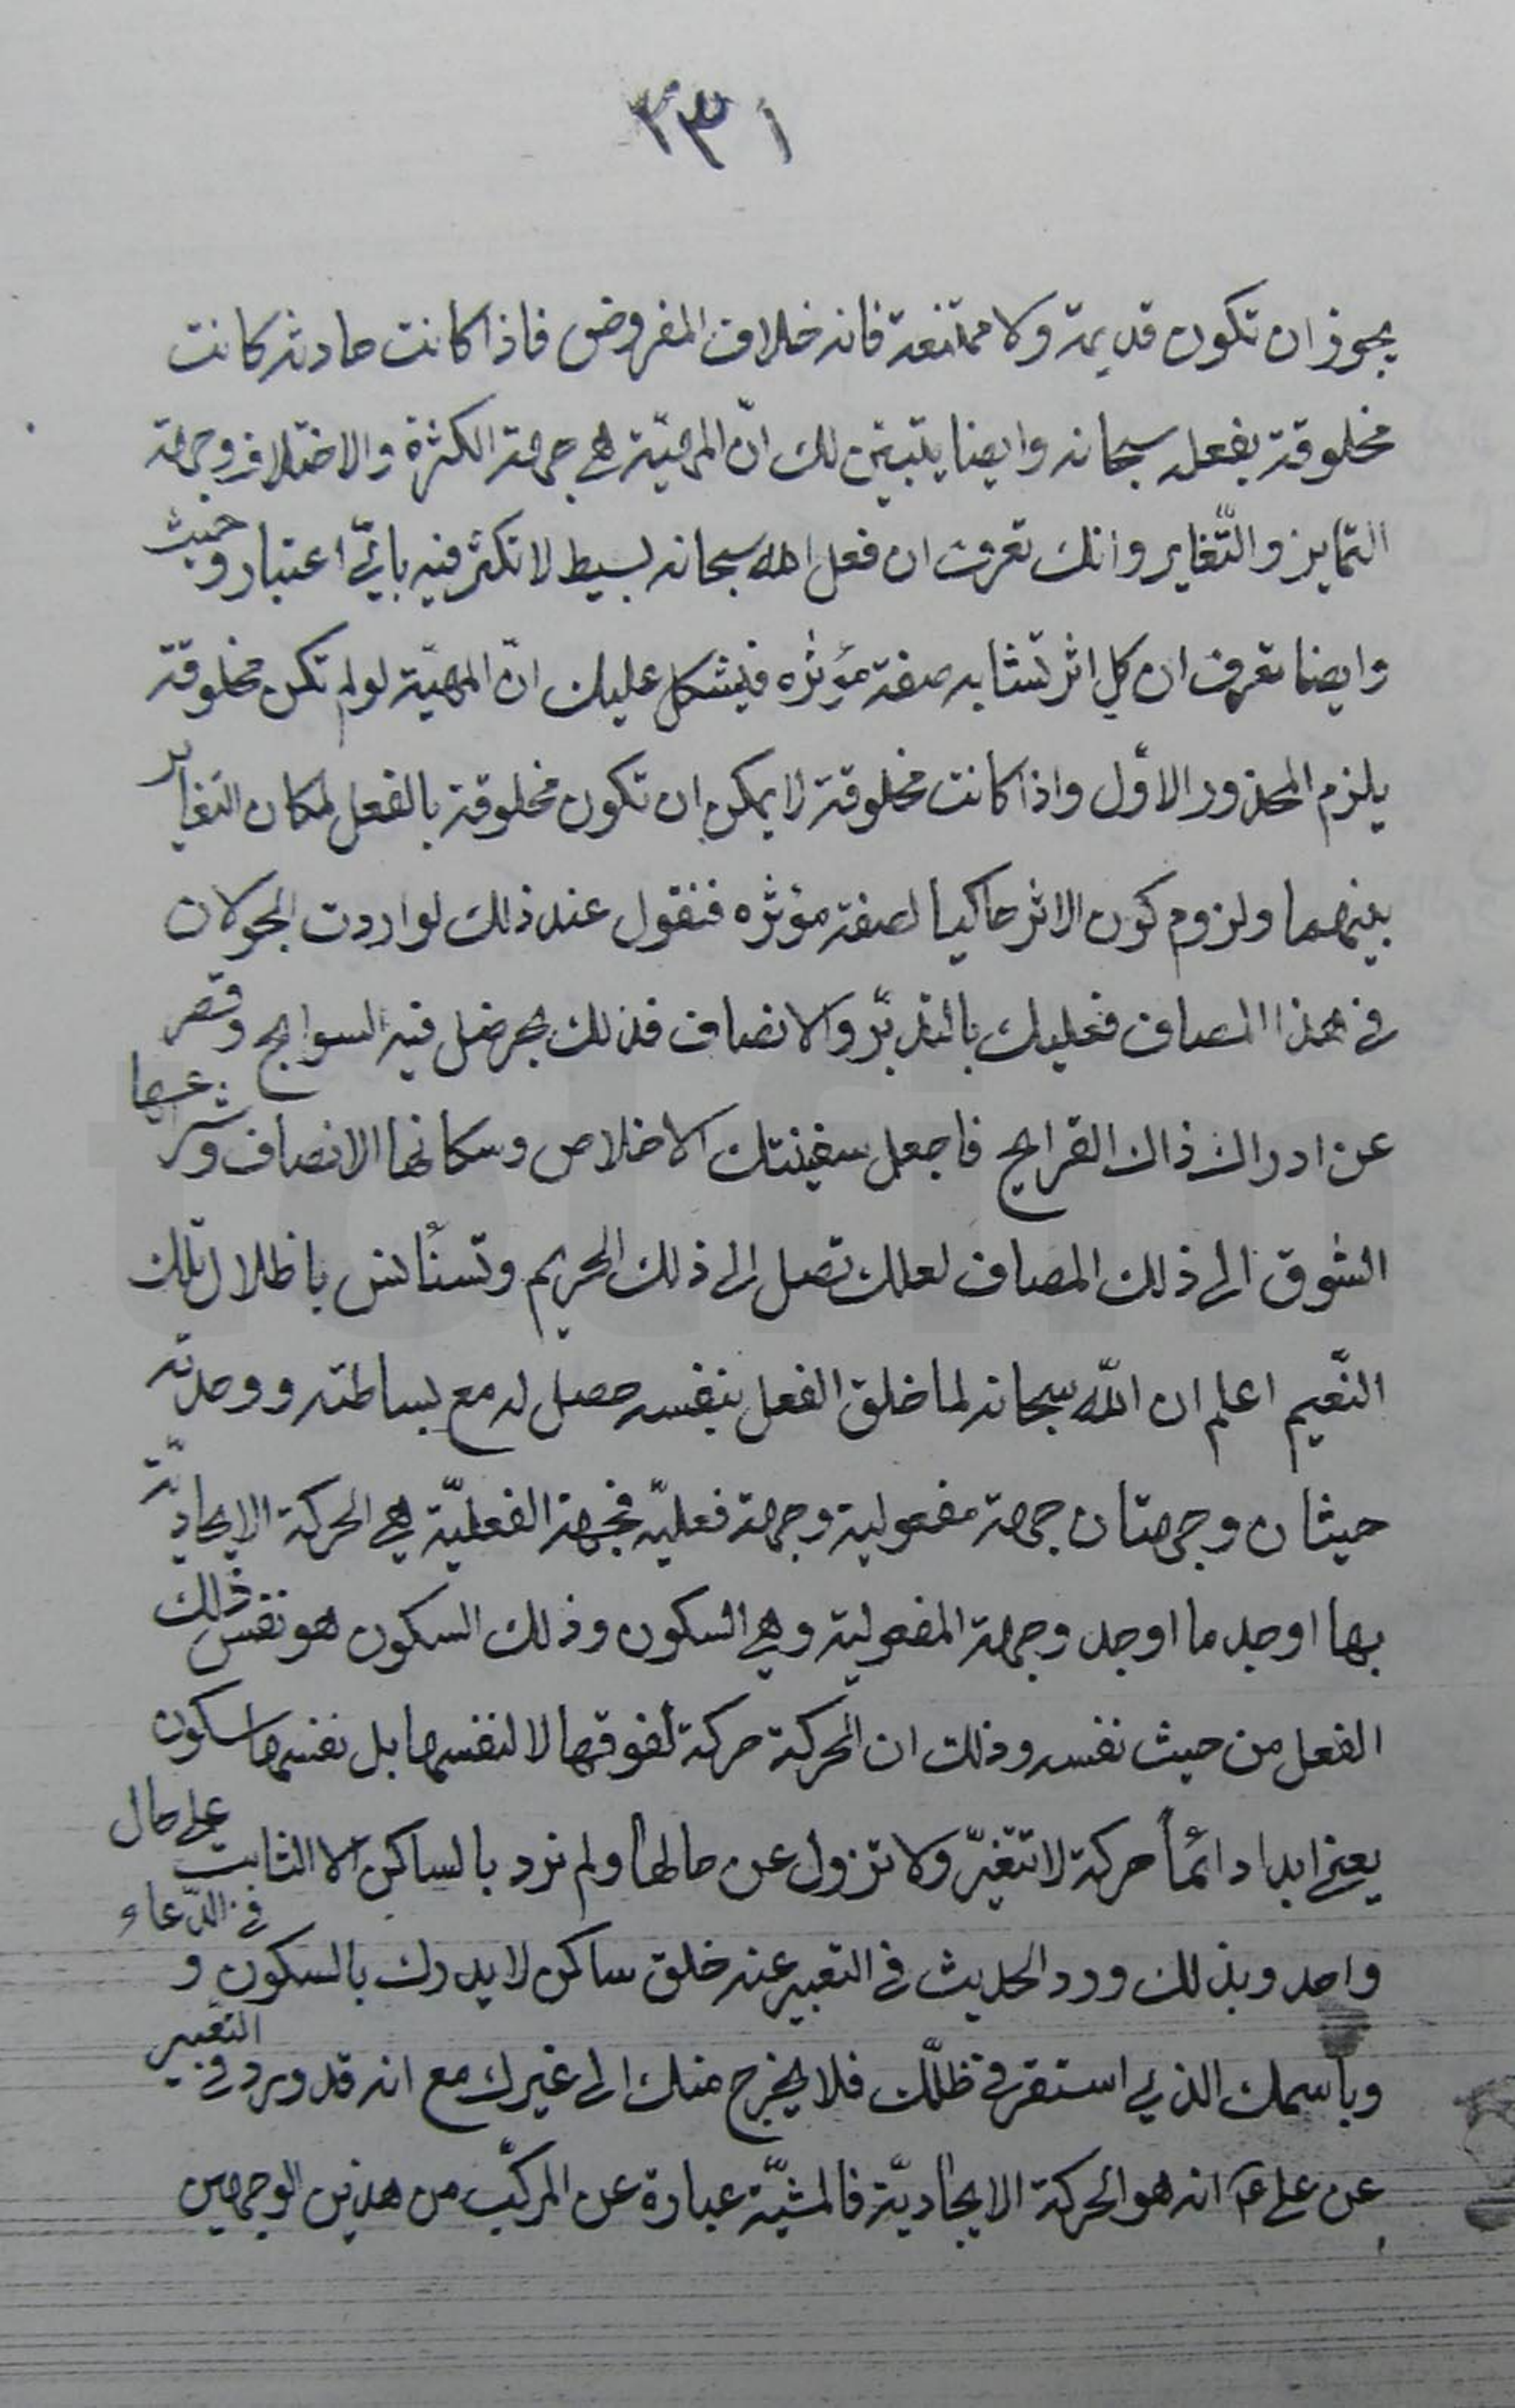 ٣٣١
يجوز ان تكون قديمة ولا ممتنعة فانه خلاف المفروض فاذا كانت حادثة كانت
مخلوقة بفعله سبحانه وايضا يتبين لك انّ المهيّة هي جهة الكثرة والاختلاف وجهة
التمايز والتّغاير وانك تعرف ان فعل الله سبحانه بسيط لا تكثر فيه بايّ اعتبار وحيث
وايضا تعرف ان كل اثر تشابه صفة مؤثره فيشكل عليك انّ المهيّة لو لم تكن مخلوقة
يلزم المحذور الاوّل واذا كانت مخلوقة لا يمكن ان تكون مخلوقة بالفعل لمكان التغاير
بينهما ولزوم كون الاثر حاكيا لصفة مؤثره فنقول عند ذلك لو اردت الجولان
في هذا المصاف فعليك بالتدبّر والانصاف فذلك بحر ضل فيه السوابح وقصر
عن ادراك ذاك القرايح فاجعل سفينتك الاخلاص وسكانها الانصاف وشراعها
الشوق الى ذلك المصاف لعلك تصل الى ذلك الحريم وتستأنس باظلال تلك
النّعيم اعلم ان اللّه سبحانه لما خلق الفعل بنفسه حصل له مع بساطته ووحدته
حيثان وجهتان جهة مفعولية وجهة فعليّة فجهة الفعليّة هي الحركة الايجاديّة
بها اوجد ما اوجد وجهة المفعولية وهي السكون وذلك السكون هو نفس ذلك
الفعل من حيث نفسه وذلك ان الحركة حركة لفوقها لا لنفسها بل نفسها سكون
يعني ابدا دائماً حركة لا تتغيّر ولا تزول عن حالها ولم نرد بالساكن الا الثابت على حال
واحد وبذلك ورد الحديث في التعبير عنه خلق ساكن لا يدرك بالسكون و في الدّعاء
وباسمك الذي استقر في ظلّك فلا يخرج منك الى غيرك مع انه قد ورد في التعبير
عن علي ع انه هو الحركة الايجاديّة فالمشيّة عبارة عن المركّب من هذين الوجهين